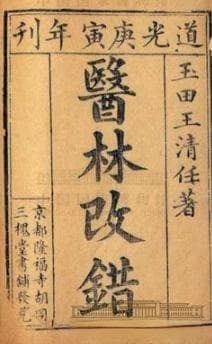 道光庚寅年刊
玉田王清任著
醫林改錯
京都隆福寺胡同
三槐堂書鋪發兌